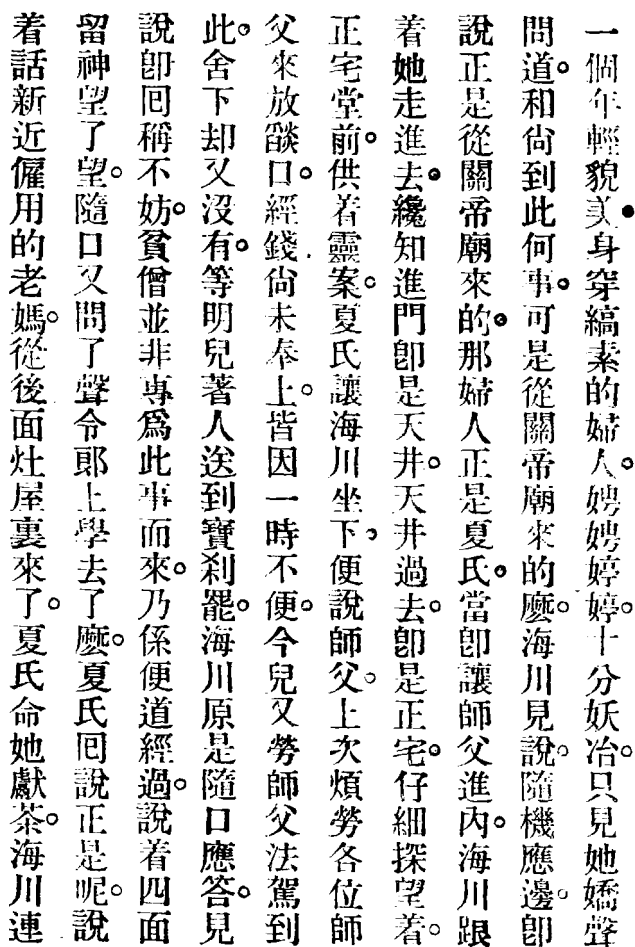 一個年輕貌美身穿縞素的婦人。娉娉婷婷。十分妖冶。只見她嬌聲
問道。和尙到此何事。可是從關帝廟來的麽。海川見說。隨機應邊。卽
說正是從關帝廟來的。那婦人正是夏氏。當卽讓師父進內。海川跟
着她走進去。纔知進門卽是天井。天井過去。卽是正宅。仔細探望着。
正宅堂前。供着靈案。夏氏讓海川坐下。便說師父。上次煩勞各位師
父來放燄口。經錢尙未奉上。皆因一時不便。今兒又勞師父法駕到
此。舍下却又沒有。等明兒著人送到寶剎罷。海川原是隨口應答。見
說卽回稱不妨。貧僧並非專爲此事而來。乃係便道經過。說着四面
留神望了望。隨口又問了聲令郎上學去了麽。夏氏回說正是呢。說
着話新近僱用的老媽。從後面灶屋裏來了。夏氏命她獻茶。海川連